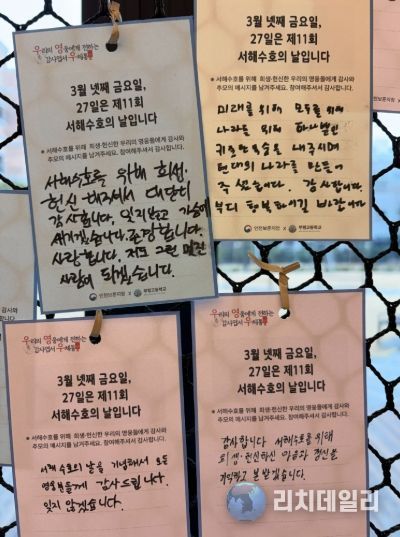 우리의 영웅에게 전하는
감사엽서 우체통
3월 넷째 금요일,
27일은 제11회
서해수호의 날입니다
※ 서해수호를 위해 희생·헌신한 우리의 영웅들에게 감사와
추모의 메시지를 남겨주세요. 참여해주셔서 감사합니다.
서해수호를 위해 희생,
헌신 해주셔서 대단히
감사합니다. 잊지않고 가슴에
새기겠습니다. 존경합니다.
사랑합니다. 저도 그런 멋진
사람이 되겠습니다.
인천보훈지청 X 부평고등학교
3월 넷째 금요일,
27일은 제11회
서해수호의 날입니다
※ 서해수호를 위해 희생·헌신한 우리의 영웅들에게 감사와
추모의 메시지를 남겨주세요. 참여해주셔서 감사합니다.
미래를 위해 모두를 위해
나라를 위해 하나뿐인
귀중한 목숨을 내주시며
현대의 나라를 만들어
주셨습니다. 감사합니다.
부디 행복하시길 바랍니다
인천보훈지청 X 부평고등학교
우리의 영웅에게 전하는
감사엽서 우체통
3월 넷째 금요일,
27일은 제11회
서해수호의 날입니다
※ 서해수호를 위해 희생·헌신한 우리의 영웅들에게 감사와
추모의 메시지를 남겨주세요. 참여해주셔서 감사합니다.
서해 수호의 날을 기념해서 모든
영웅분들께 감사드립니다.
잊지 않겠습니다.
우리의 영웅에게 전하는
감사엽서 우체통
3월 넷째 금요일,
27일은 제11회
서해수호의 날입니다
※ 서해수호를 위해 희생·헌신한 우리의 영웅들에게 감사와
추모의 메시지를 남겨주세요. 참여해주셔서 감사합니다.
감사합니다 서해수호를 위해
희생·헌신하신 마음과 정신을
기억하고 본받겠습니다.
리치데일리